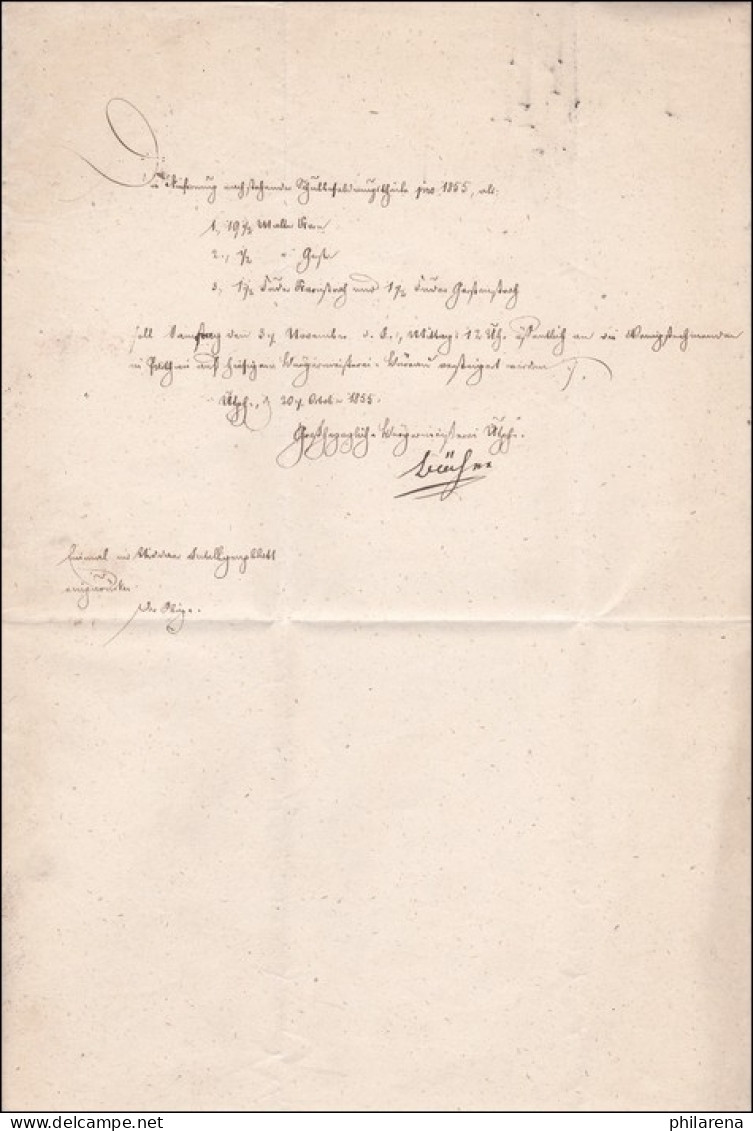 Die Lieferung nachstehender Schulbesoldungstheile pro 1855, als:
1, 19 1/2 Malter Korn
2., 1/2 " Gerste
3, 1 1/2 Fuder Kornstroh und 1 1/2 Fuder Gerstenstroh
soll Samstag den 3. November d. J., Mittags 12 Uhr öffentlich an die Wenigstnehmenden
in auf hiesigem Bürgermeisterei-Büreau versteigert werden.
Utphe, d. 20. Octob. 1855.
Großherzogliche Bürgermeisterei Utphe.
Einmal im Intelligenzblatt
einzurücken
Der Obige.
philarena